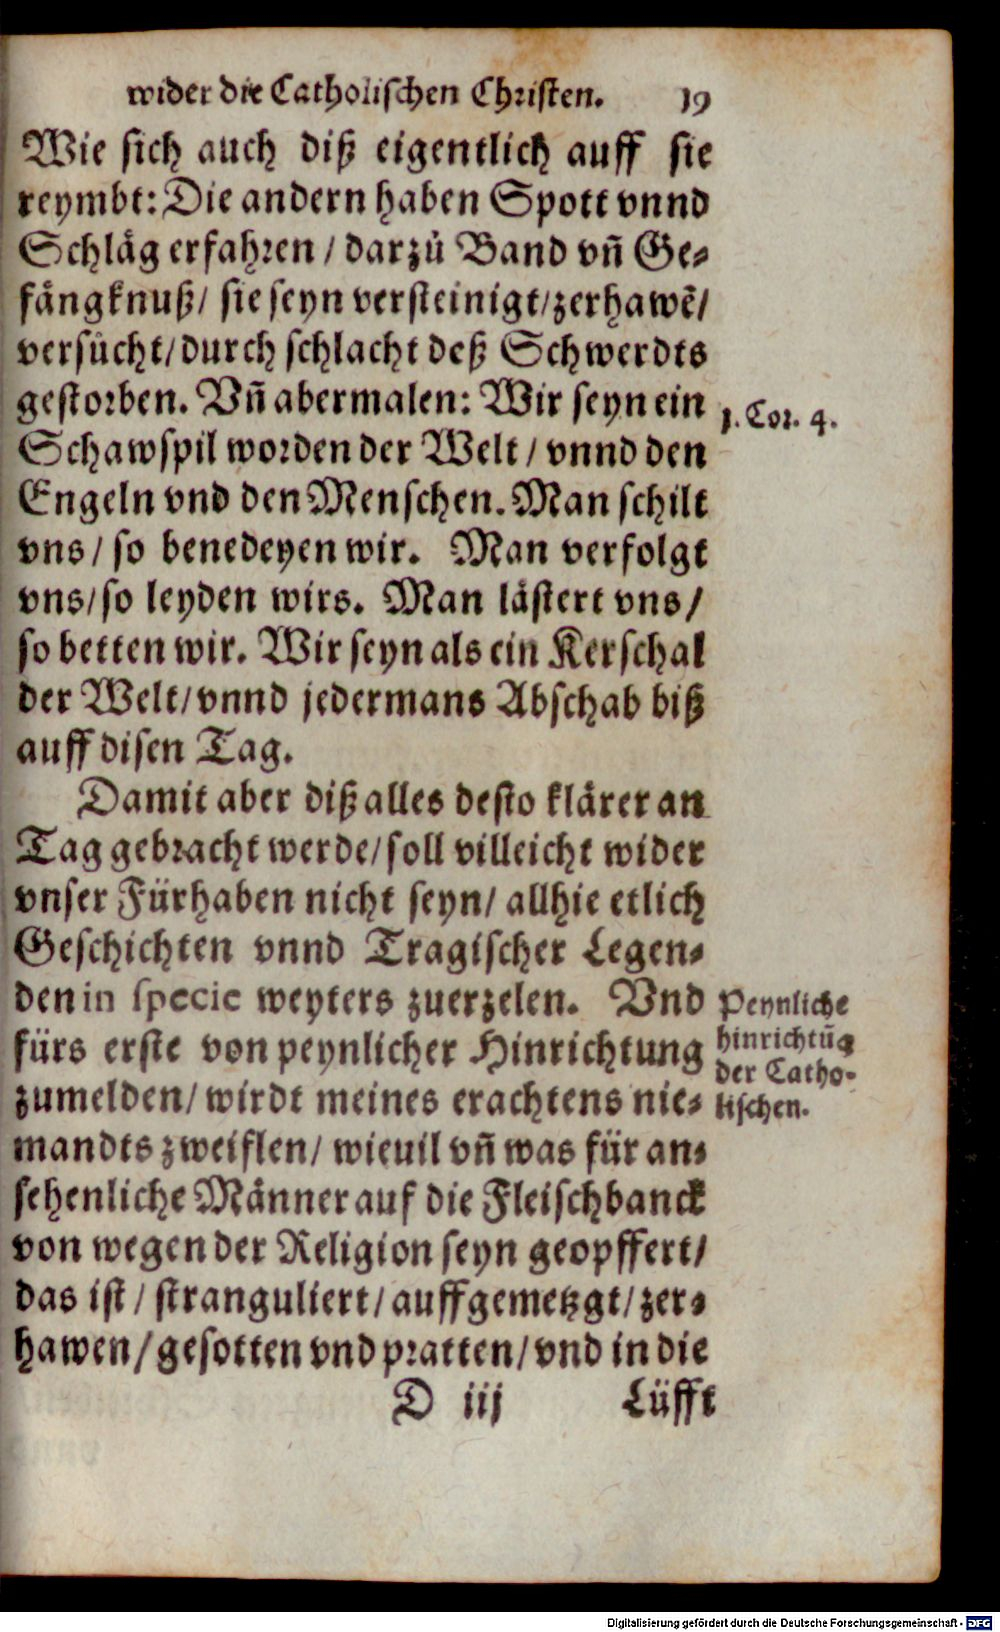 wider die Catholischen Christen. 19
Wie sich auch diß eigentlich auff sie
reymbt: Die andern haben Spott vnnd
Schläg erfahren / darzů Band vñ Ge-
fängknuß / sie seyn versteinigt / zerhawẽ /
versůcht / durch schlacht deß Schwerdts
gestorben. Vñ abermalen: Wir seyn ein
1. Cor. 4.
Schawspil worden der Welt / vnnd den
Engeln vnd den Menschen. Man schilt
vns / so benedeyen wir. Man verfolgt
vns / so leyden wirs. Man lästert vns /
so betten wir. Wir seyn als ein Kerschal
der Welt / vnnd jedermans Abschab biß
auff disen Tag.
Damit aber diß alles desto klärer an
Tag gebracht werde / soll villeicht wider
vnser Fürhaben nicht seyn / allhie etlich
Geschichten vnnd Tragischer Legen-
den in specie weyters zuerzelen. Vnd
fürs erste von peynlicher Hinrichtung
zumelden / wirdt meines erachtens nie-
mandts zweiflen / wieuil vñ was für an-
sehenliche Männer auf die Fleischbanck
von wegen der Religion seyn geopffert /
das ist / stranguliert / auffgemetzgt / zer-
hawen / gesotten vnd pratten / vnd in die
Peynliche
hinrichtũg
der Catho-
lischen.
D iij Lüfft
Digitalisierung gefördert durch die Deutsche Forschungsgemeinschaft - DFG